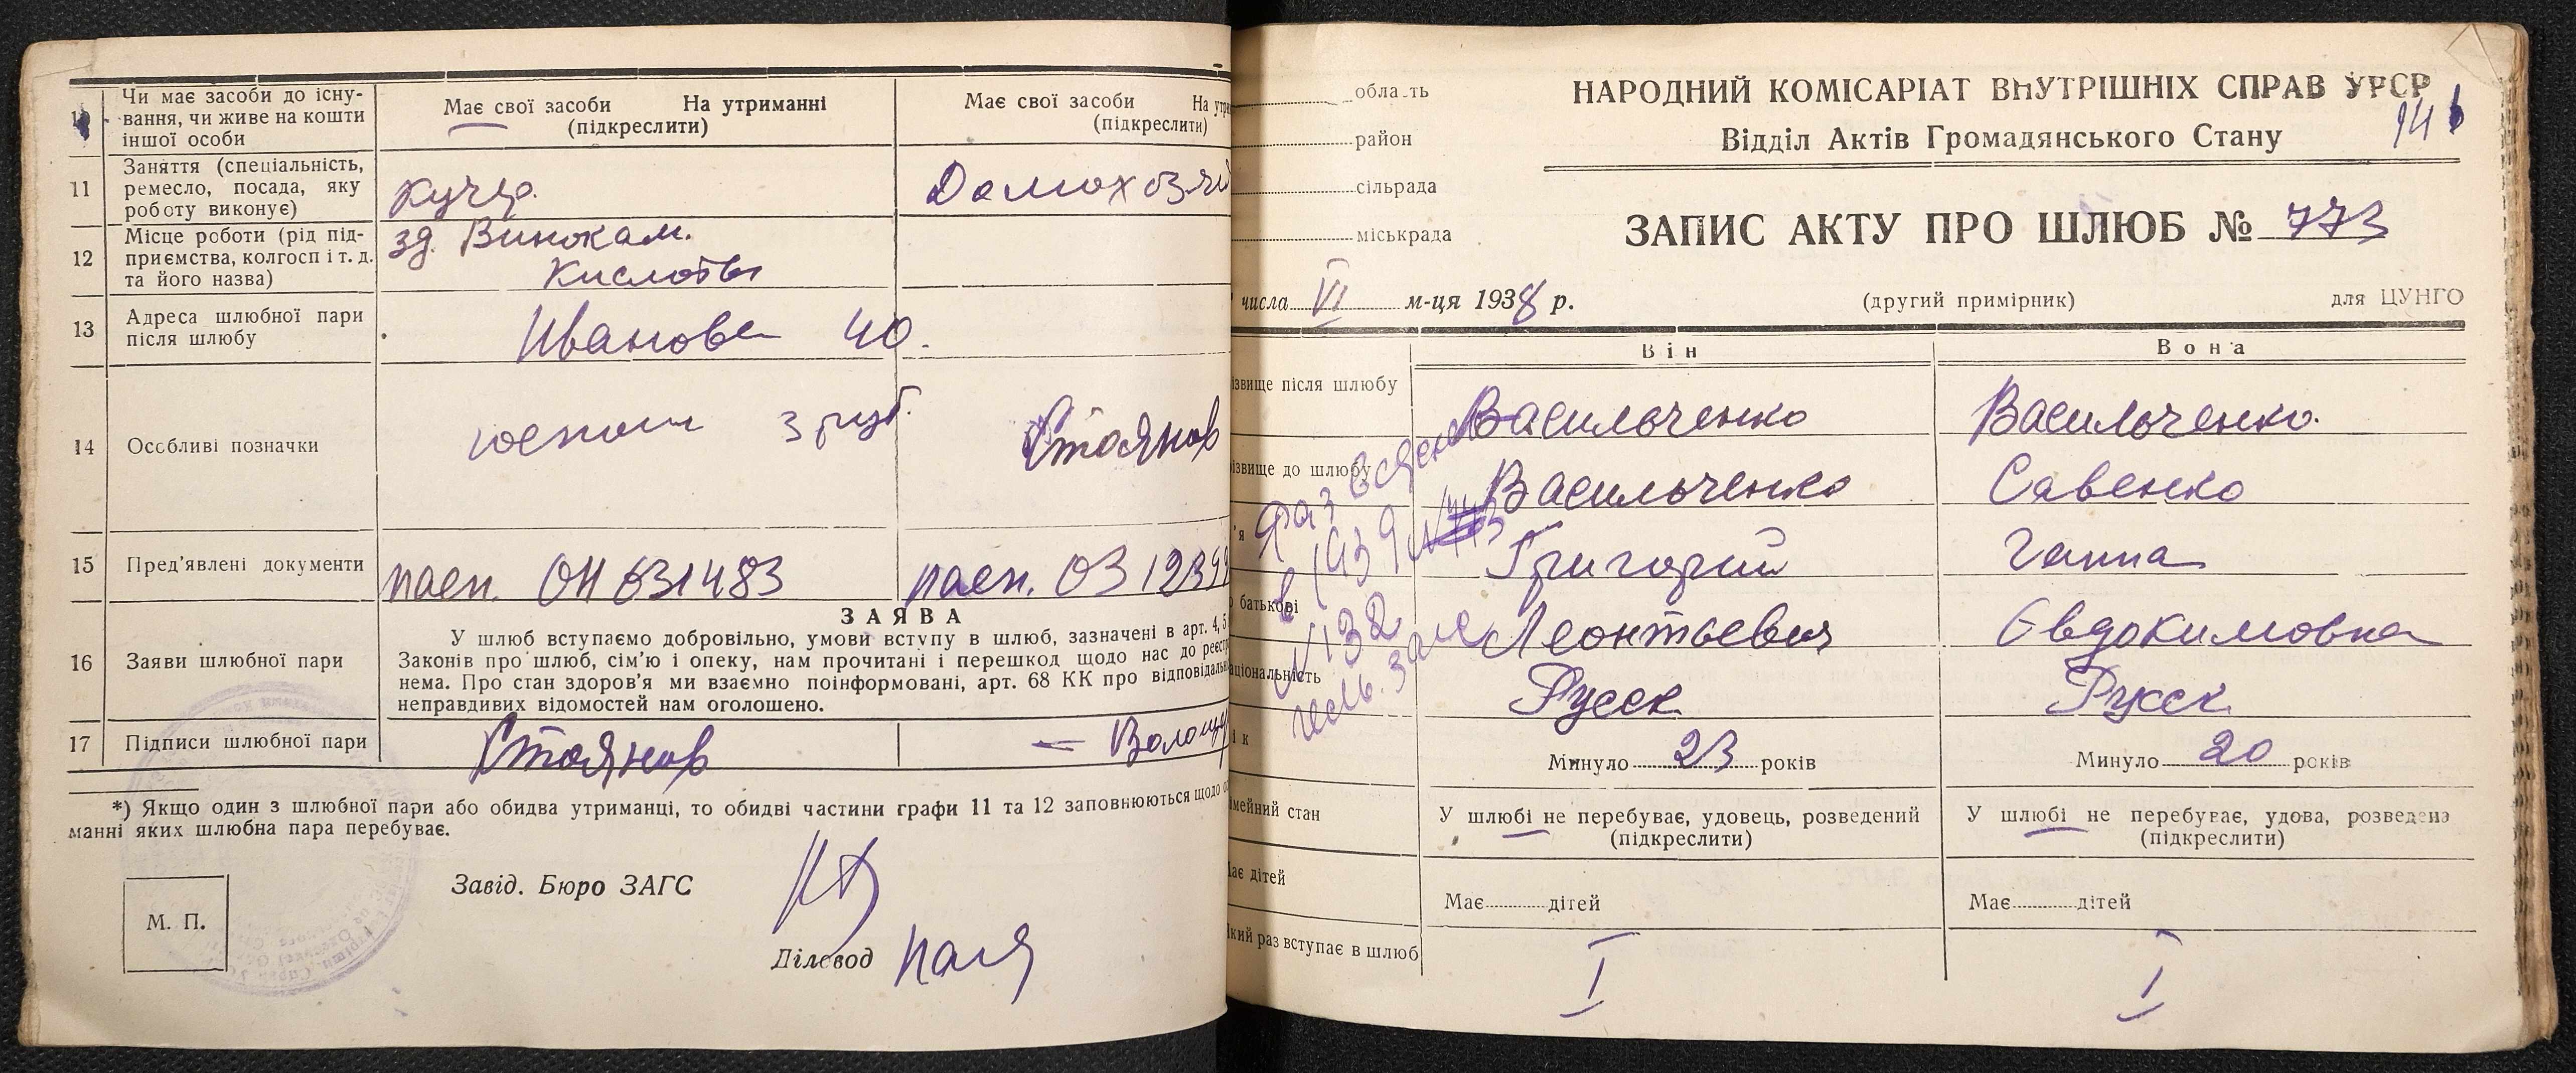 10 Чи має засоби до існу-
вання, чи живе на кошти
іншої особи
Має свої засоби На утриманні
(підкреслити)
Має свої засоби На утри
(підкреслити)
11 Заняття (спеціальність,
ремесло, посада, яку
роботу виконує)
Кучер.
Домохозяй
12 Місце роботи (рід під-
приємства, колгосп і т. д.
та його назва)
зд. Винокам.
Кислоты
13 Адреса шлюбної пари
після шлюбу
Иванова 40.
14 Особливі позначки
3 руб.
Стоянов
15 Пред'явлені документи
пасп. ОН 631483
пасп. ОЗ 12399
ЗАЯВА
16 Заяви шлюбної пари
У шлюб вступаємо добровільно, умови вступу в шлюб, зазначені в арт. 4, 5
Законів про шлюб, сім'ю і опеку, нам прочитані і перешкод щодо нас до реєстр
нема. Про стан здоров'я ми взаємно поінформовані, арт. 68 КК про відповідальн
неправдивих відомостей нам оголошено.
17 Підписи шлюбної пари
Стоянов
Волощу
*) Якщо один з шлюбної пари або обидва утриманці, то обидві частини графи 11 та 12 заповнюються щодо
манні яких шлюбна пара перебуває.
Завід. Бюро ЗАГС
М. П.
Діловод
область
район
сільрада
міськрада
НАРОДНИЙ КОМІСАРІАТ ВНУТРІШНІХ СПРАВ УРСР
Відділ Актів Громадянського Стану
141
ЗАПИС АКТУ ПРО ШЛЮБ № 773
числа VI м-ця 1938 р.
(другий примірник)
для ЦУНГО
Він
Вона
ізвище після шлюбу
Васильченко
Васильченко.
ізвище до шлюбу
Васильченко
Савенко
'я
Григорий
Ганна
о батькові
Леонтьевич
Евдокимовна
аціональність
Русск
Русск
ік
Минуло 23 років
Минуло 20 років
імейний стан
У шлюбі не перебуває, удовець, розведений
(підкреслити)
У шлюбі не перебуває, удова, розведена
(підкреслити)
Має дітей
Має дітей
Має дітей
Який раз вступає в шлюб
I
I
Разведены
в 1939
N 132